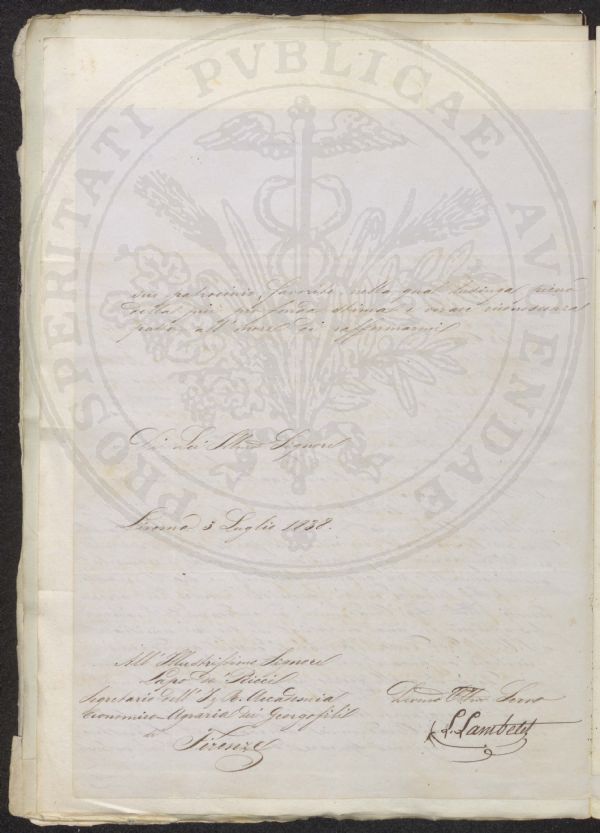 PROSPERITATI PVBLICAE AVGENDAE
suo patrocinio favorire nella qual lusinga pieno
della più profonda stima e
all' onore di raffermarmi
Di Lei Illmo Signore
Livorno 3 Luglio 1838.
All' Illustrissimo Signore
Segretario dell' I. e R. Accademia
Economico-Agraria dei Georgofili
di
Firenze
Devmo Obb Servo
Lambett